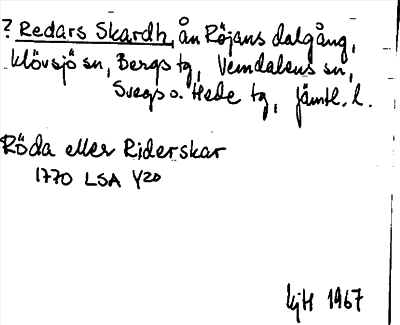 ? Redars Skardh, ån Röjans dalgång,
Klövsjö sn, Bergs tg, Vemdalens sn,
Svegs o. Hede tg, Jämtl. l.
Röda eller Riderskar
1770 LSA Y20
LjH 1967